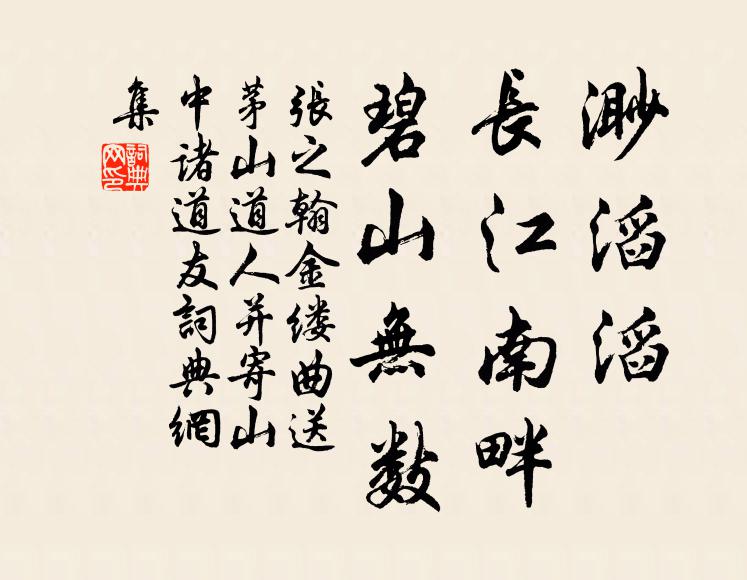 渺滔滔
長江南畔
碧山無数
張之翰金缕曲送
茅山道人并寄山
中诸道友詞典網
集
詞典网印